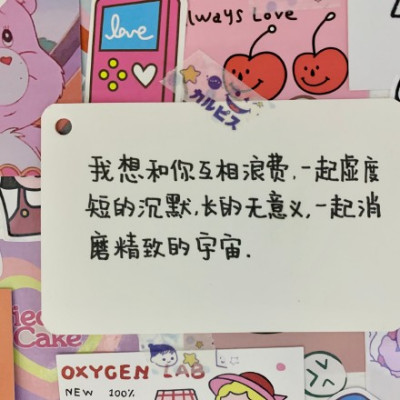 always Love
love
カルピス
我想和你互相浪费.一起虚度
短的沉默.长的无意义.一起消
磨精致的宇宙.
Cake
OXYGEN LAB
NEW 100%